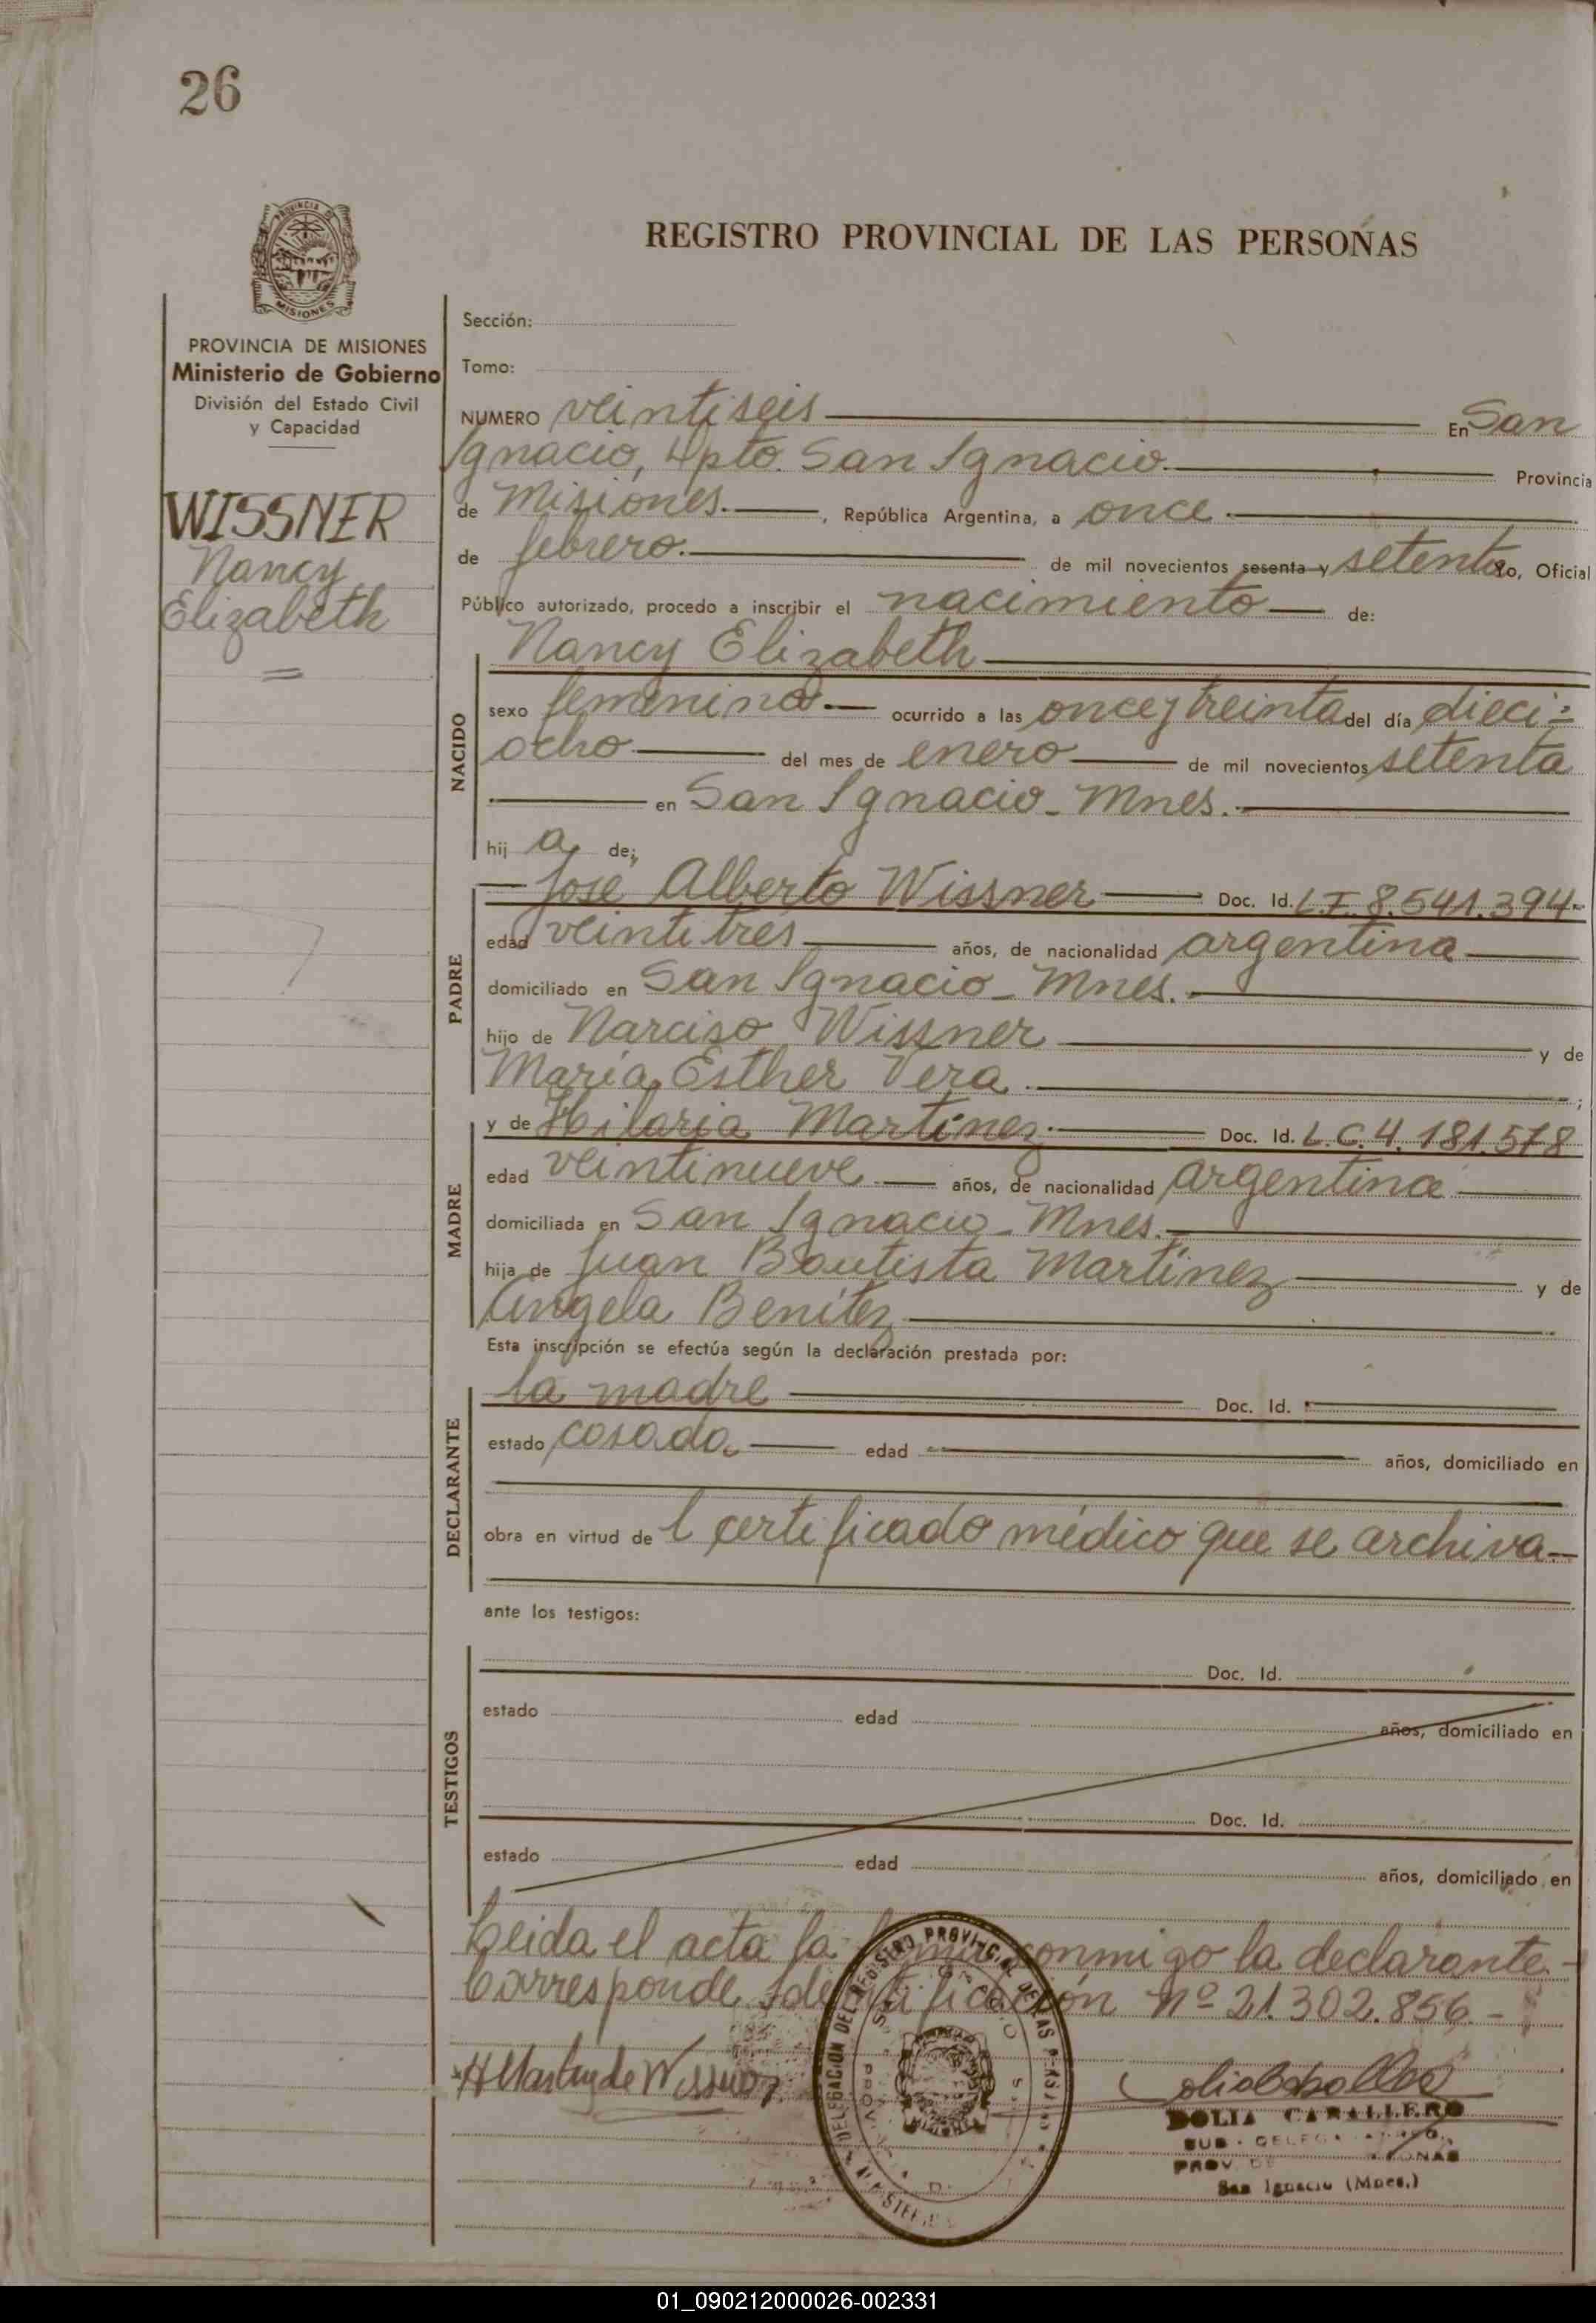 26
PROVINCIA DE
MISIONES
REGISTRO PROVINCIAL DE LAS PERSONAS
PROVINCIA DE MISIONES
Ministerio de Gobierno
División del Estado Civil
y Capacidad
WISSNER
Nancy
Elizabeth
Sección:
Tomo:
NUMERO veintiseis En San
Ignacio, Dpto. San Ignacio. Provincia
de Misiones. , República Argentina, a once
de febrero. de mil novecientos sesenta y setenta Yo, Oficial
Público autorizado, procedo a inscribir el nacimiento de:
NACIDO
Nancy Elizabeth
sexo femenino. ocurrido a las once y treinta del día dieci-
ocho del mes de enero de mil novecientos setenta
en San Ignacio - Mnes.
hij a de;
PADRE
José Alberto Wissner Doc. Id. L.E. 8.541.394-
edad veintitrés años, de nacionalidad argentina
domiciliado en San Ignacio - Mnes.
hijo de Narciso Wissner y de
María Esther Vera ;
MADRE
y de Hilaria Martínez. Doc. Id. L.C. 4.181.578
edad veintinueve años, de nacionalidad argentina
domiciliada en San Ignacio - Mnes.
hija de Juan Bautista Martínez y de
Angela Benítez
Esta inscripción se efectúa según la declaración prestada por:
DECLARANTE
la madre Doc. Id.
estado casada edad años, domiciliado en
obra en virtud de l certificado médico que se archiva
ante los testigos:
TESTIGOS
Doc. Id.
estado edad años, domiciliado en
Doc. Id.
estado edad años, domiciliado en
Leida el acta la firma conmigo la declarante.-
Corresponde Identificación nº 21.302.856.-
DELEGACION DEL REGISTRO PROVINCIAL DE LAS PERSONAS
DOLIA CABALLERO
San Ignacio (Mnes.)
01_090212000026-002331